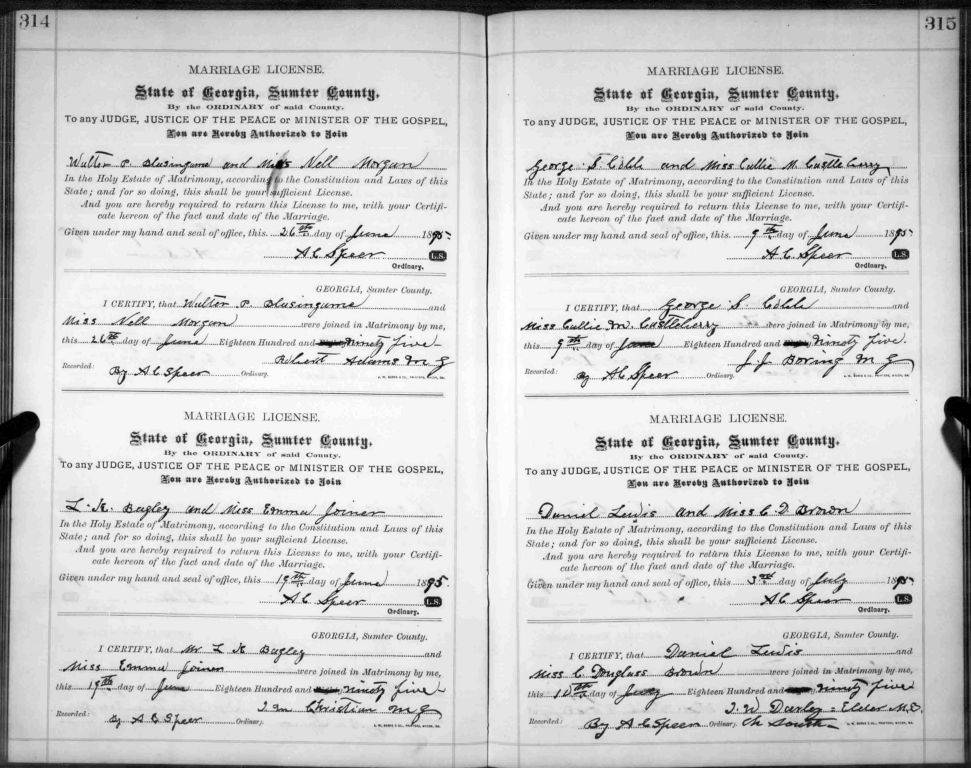 314
MARRIAGE LICENSE.
State of Georgia, Sumter County,
By the ORDINARY of said County.
To any JUDGE, JUSTICE OF THE PEACE or MINISTER OF THE GOSPEL,
You are Hereby Authorized to Join
Walter P. Blasingame and Miss Nell Morgan
In the Holy Estate of Matrimony, according to the Constitution and Laws of this
State; and for so doing, this shall be your sufficient License.
And you are hereby required to return this License to me, with your Certifi-
cate hereon of the fact and date of the Marriage.
Given under my hand and seal of office, this 26th day of June 1895
A C Speer L.S.
Ordinary.
GEORGIA, Sumter County.
I CERTIFY, that Walter P. Blasingame and
Miss Nell Morgan were joined in Matrimony by me,
this 26th day of June Eighteen Hundred and Ninety five
Robert Adams M G
Recorded: By A C Speer Ordinary.
MARRIAGE LICENSE.
State of Georgia, Sumter County,
By the ORDINARY of said County.
To any JUDGE, JUSTICE OF THE PEACE or MINISTER OF THE GOSPEL,
You are Hereby Authorized to Join
L. K. Bagley and Miss Emma Joiner
In the Holy Estate of Matrimony, according to the Constitution and Laws of this
State; and for so doing, this shall be your sufficient License.
And you are hereby required to return this License to me, with your Certifi-
cate hereon of the fact and date of the Marriage.
Given under my hand and seal of office, this 19th day of June 1895.
A C Speer L.S.
Ordinary.
GEORGIA, Sumter County.
I CERTIFY, that Mr. L K Bagley and
Miss Emma Joiner were joined in Matrimony by me,
this 19th day of June Eighteen Hundred and Ninety five
J. M Christian M G
Recorded: By A C Speer Ordinary.
315
MARRIAGE LICENSE.
State of Georgia, Sumter County,
By the ORDINARY of said County.
To any JUDGE, JUSTICE OF THE PEACE or MINISTER OF THE GOSPEL,
You are Hereby Authorized to Join
George S Cobb and Miss Cullie M. Castleberry
In the Holy Estate of Matrimony, according to the Constitution and Laws of this
State; and for so doing, this shall be your sufficient License.
And you are hereby required to return this License to me, with your Certifi-
cate hereon of the fact and date of the Marriage.
Given under my hand and seal of office, this 9th day of June 1895
A. C. Speer L.S.
Ordinary.
GEORGIA, Sumter County.
I CERTIFY, that George S. Cobb and
Miss Cullie M Castleberry were joined in Matrimony by me,
this 9th day of June Eighteen Hundred and Ninety five
J. J Boring M G
Recorded: By A C Speer Ordinary.
MARRIAGE LICENSE.
State of Georgia, Sumter County,
By the ORDINARY of said County.
To any JUDGE, JUSTICE OF THE PEACE or MINISTER OF THE GOSPEL,
You are Hereby Authorized to Join
Daniel Lewis and Miss C D Brown
In the Holy Estate of Matrimony, according to the Constitution and Laws of this
State; and for so doing, this shall be your sufficient License.
And you are hereby required to return this License to me, with your Certifi-
cate hereon of the fact and date of the Marriage.
Given under my hand and seal of office, this 3rd day of July 1895
A C Speer L.S.
Ordinary.
GEORGIA, Sumter County.
I CERTIFY, that Daniel Lewis and
Miss C Douglass Brown were joined in Matrimony by me,
this 10th day of July Eighteen Hundred and Ninety five
J. W Darley = Elder M.E.
Recorded: By A C Speer Ordinary. Ch South